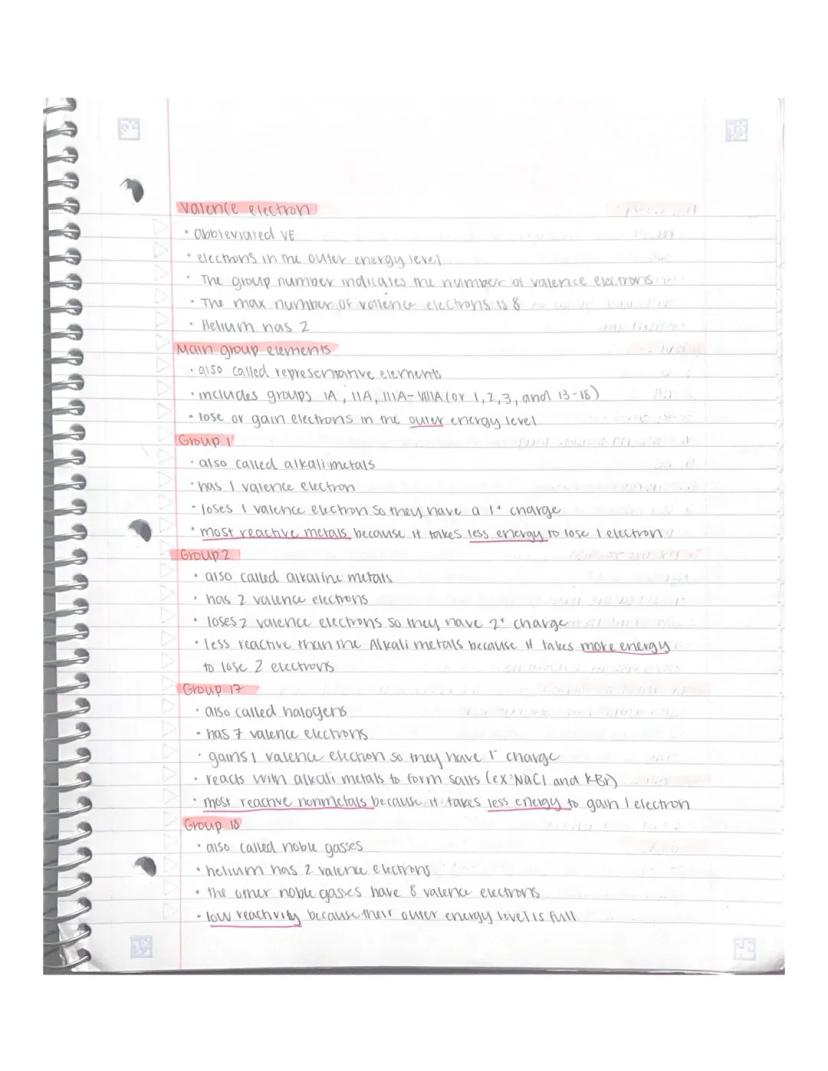 Valence electron
• abbreviated VE
• electrons in the outer energy level
• The group number indicates the number of valence electrons
• The max number of valence electrons is 8
• Helium has 2
Main group elements
• also called representative elements
• includes groups IA, IIA, IIIA-VIIIA (or 1, 2, 3, and 13-18)
• lose or gain electrons in the outer energy level
Group 1
• also called alkali metals
• has 1 valence electron
• loses 1 valence electron so they have a 1⁺ charge
• most reactive metals because it takes less energy to lose 1 electron
Group 2
• also called alkaline metals
• has 2 valence electrons
• loses 2 valence electrons so they have 2⁺ charge
• less reactive than the Alkali metals because it takes more energy
to lose 2 electrons
Group 17
• also called halogens
• has 7 valence electrons
• gains 1 valence electron so they have 1⁻ charge
• reacts with alkali metals to form salts (ex: NaCl and KBr)
• most reactive nonmetals because it takes less energy to gain 1 electron
Group 18
• also called noble gasses
• helium has 2 valence electrons
• the other noble gasses have 8 valence electrons
• low reactivity because their outer energy level is full